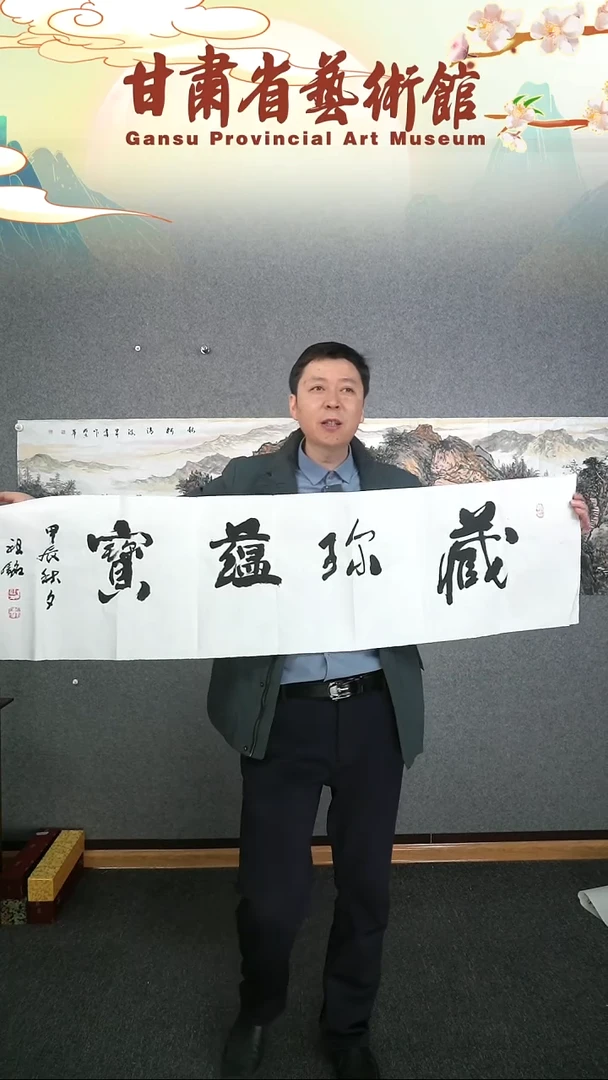 甘肅省藝術館
Gansu Provincial Art Museum
藏珎蕴寶
甲辰秋夕
祖銘